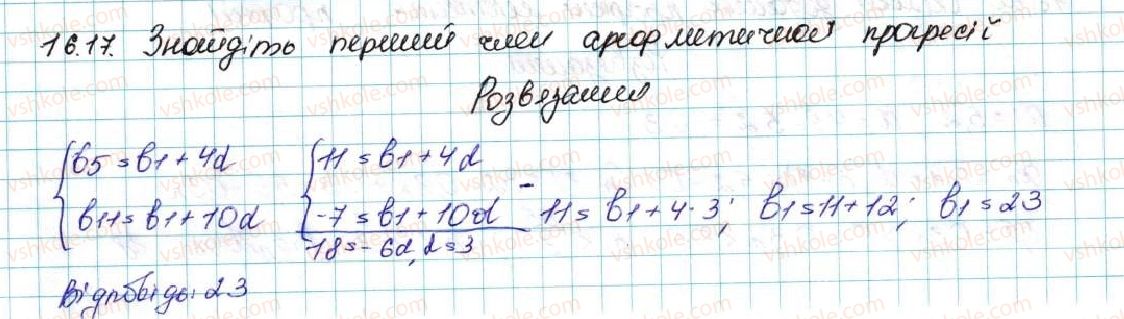 16.17. Знайдіть перший член арифметичної прогресії
Розвязання
{b5 = b1 + 4d {11 = b1 + 4d
b11 = b1 + 10d -7 = b1 + 10d - 11 = b1 + 4·3; b1 = 11 + 12; b1 = 23
18 = -6d, d = 3
Відповідь: 23